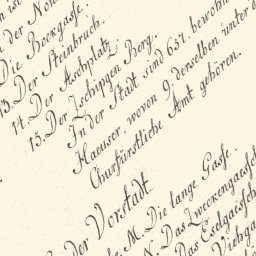 in der Nom
Die Bockgasse.
13. Der Steinbruch.
14. Der Aschplatz.
15. Der Zschipgen Berg.
In der Stadt sind 657. bewohnt
Haeuser, wovon 9 derselben unter d
Churfürstliche Amt gehören.
der Vorstadt
M. Die lange Gasse.
N. Das Zweckengaessch
Das Eselgaessch
Viehga